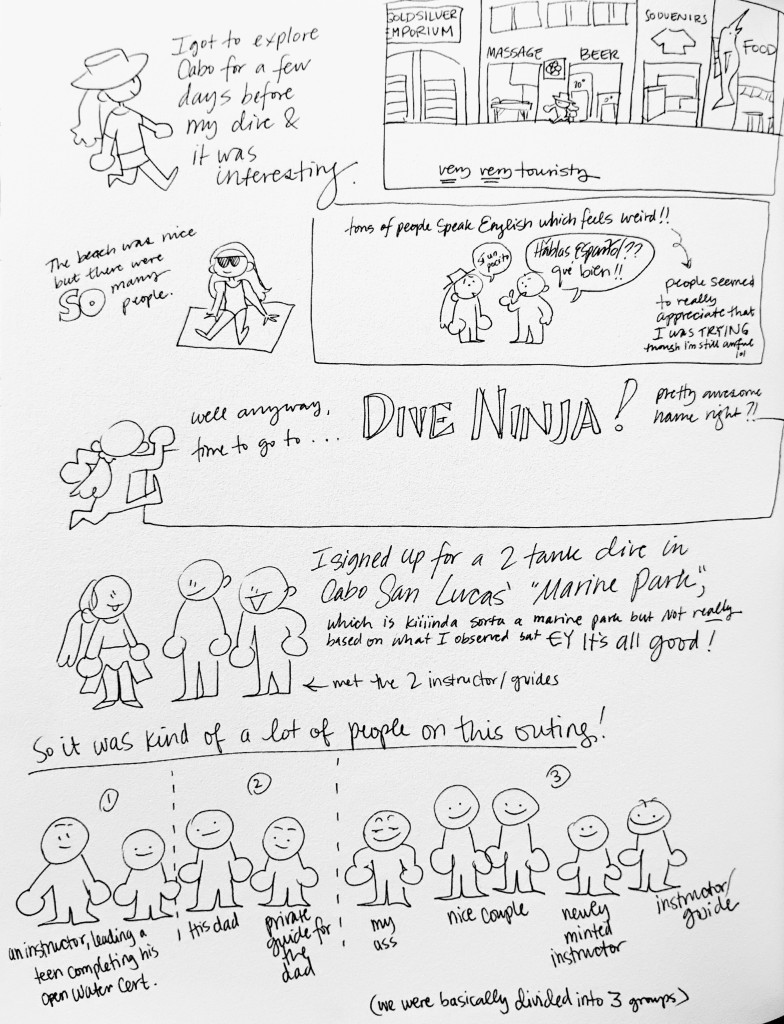 I got to explore
Cabo for a few
days before
my dive &
it was
interesting.
GOLDSILVER
EMPORIUM
MASSAGE
BEER
SOUVENIRS
FOOD
very very touristy
The beach was nice
but there were
SO many
people.
tons of people speak English which feels weird!!
sí un
pocito
Hablas Español??
qué bien!!
people seemed
to really
appreciate that
I was TRYING
though I'm still awful
lol
well anyway,
time to go to ....
DIVE NINJA!
pretty awesome
name right?!
I signed up for a 2 tank dive in
Cabo San Lucas' "Marine Park",
which is kiiiinda sorta a marine park but Not really
based on what I observed but EY It's all good!
← met the 2 instructor/guides
So it was kind of a lot of people on this outing!
1
2
3
an instructor, leading a
teen completing his
Open Water Cert.
His dad
private
guide for
the
dad
my
ass
nice couple
newly
minted
instructor
instructor/
guide
(we were basically divided into 3 groups)